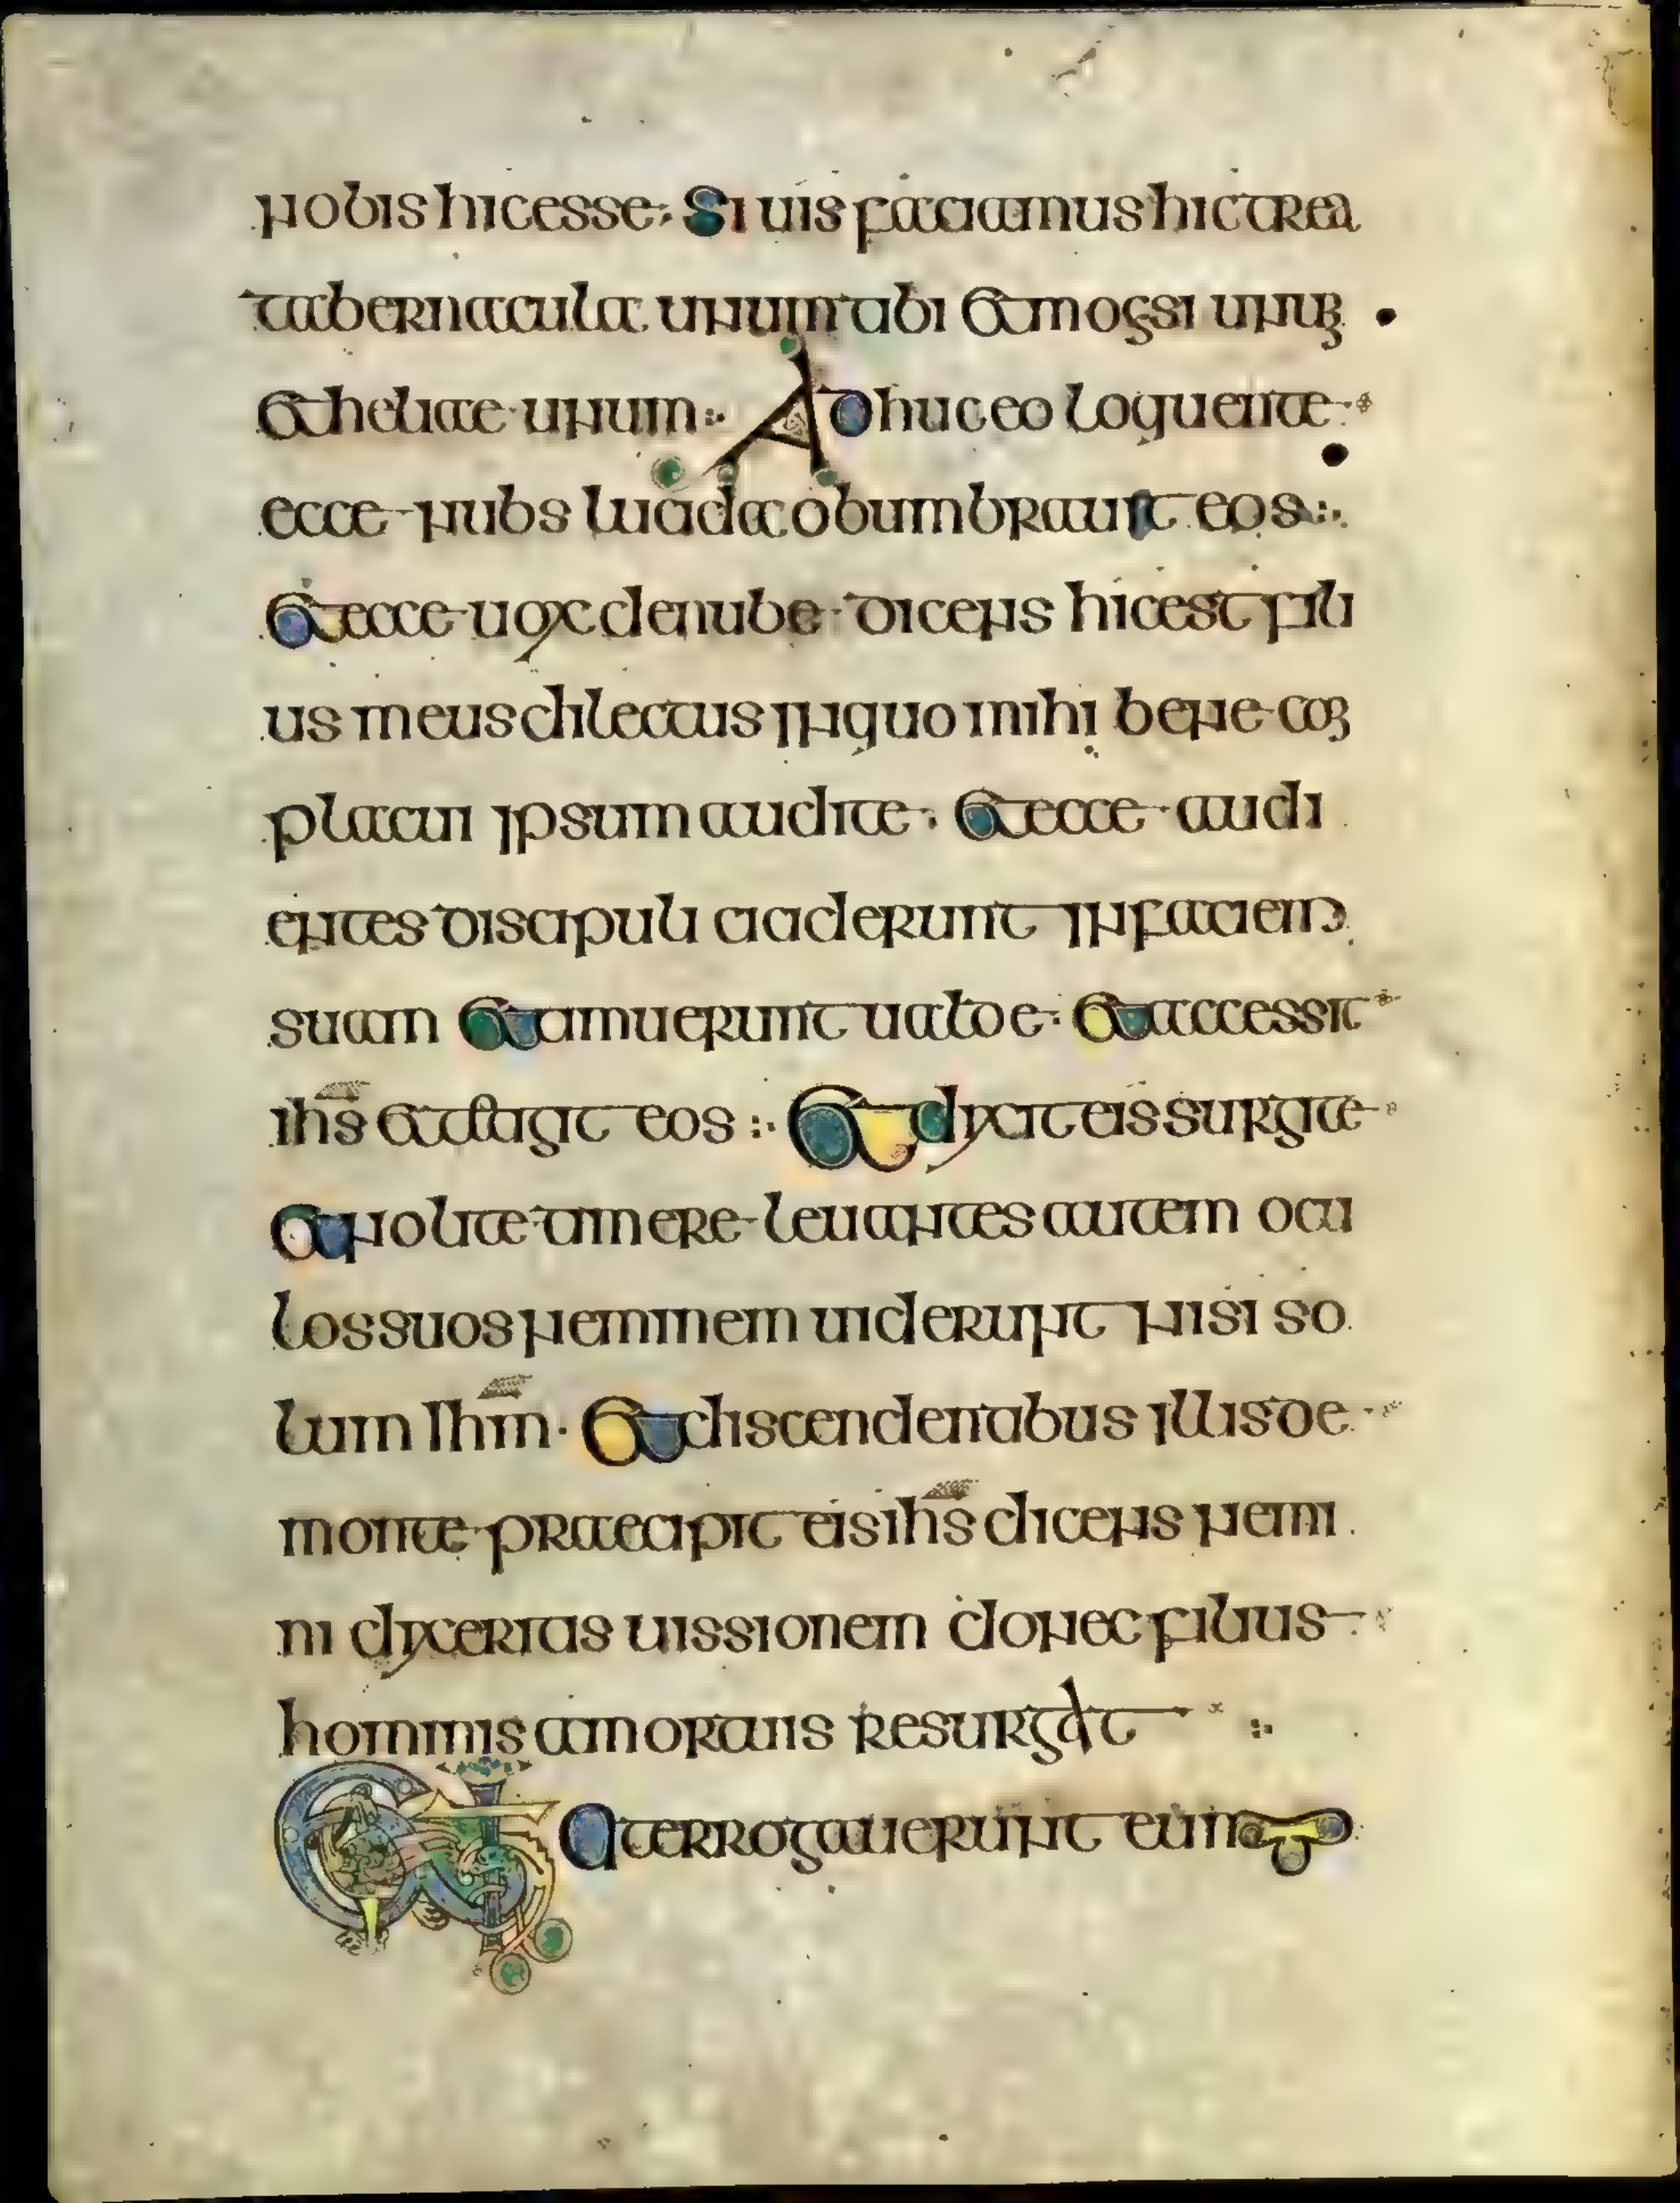 nobis hic esse· Si uis faciamus hic trea
tabernacula unum tibi & mosi unum
& heliae unum· Adhuc eo loquente
ecce nubs lucida obumbrauit eos
& ecce uox de nube dicens hic est fili
us meus dilectus in quo mihi bene com
placui ipsum audite· & ecce audi
entes discipuli ciciderunt in faciem
suam & timuerunt ualde· & accessit
ihs & tetigit eos· & dixit eis surgite
& nolite timere leuantes autem ocu
los suos neminem uiderunt nisi so
lum Ihm· & discendentibus illis de
monte praecipit eis ihs dicens nemi
ni dixeritis uissionem donec filius
hominis a mortuis resurgat
& INterrogauerunt eum